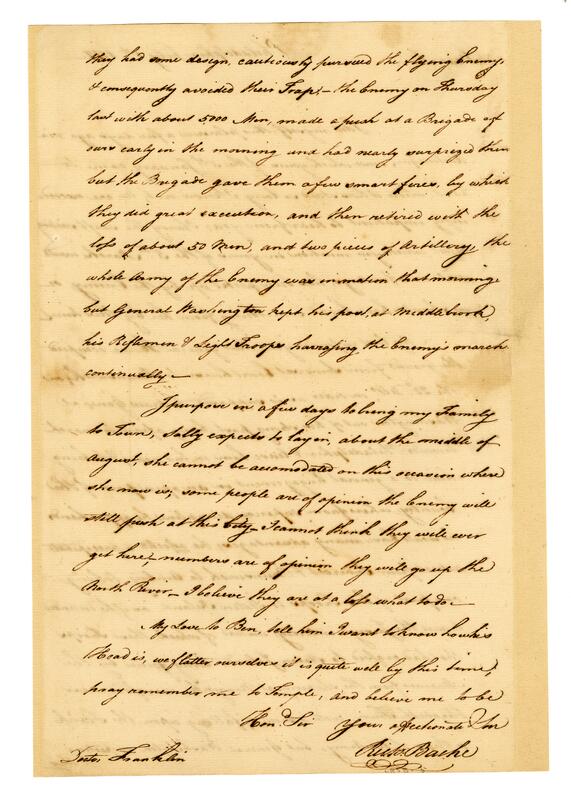 they had some design, cautiously pursued the flying Enemy,
& consequently avoided their Trap; – the Enemy on Thursday
last with about 5000 Men, made a push at a Brigade of
ours early in the morning and had nearly surprized them
but the Brigade gave them a few smart fires, by which
they did great execution, and then retired with the
loss of about 50 Men, and two pieces of Artillery, the
whole Army of the Enemy was in motion that morning
but General Washington kept his post, at Middlebrook,
his Riflemen & Light Troops harrassing the Enemy's march
continually –
I purpose in a few days to bring my Family
to Town, Sally expects to lay in, about the middle of
August, she cannot be accomodated on this occasion where
she now is; some people are of opinion the Enemy will
still push at this City – I cannot think they will ever
get here; – numbers are of opinion they will go up the
North River, – I believe they are at a loss what to do –
My Love to Ben, tell him I want to know how his
Head is, we flatter ourselves it is quite well by this time;
pray remember me to Temple, and believe me to be
Hond. Sir Your affectionate Son
Richd. Bache
Doctor Franklin